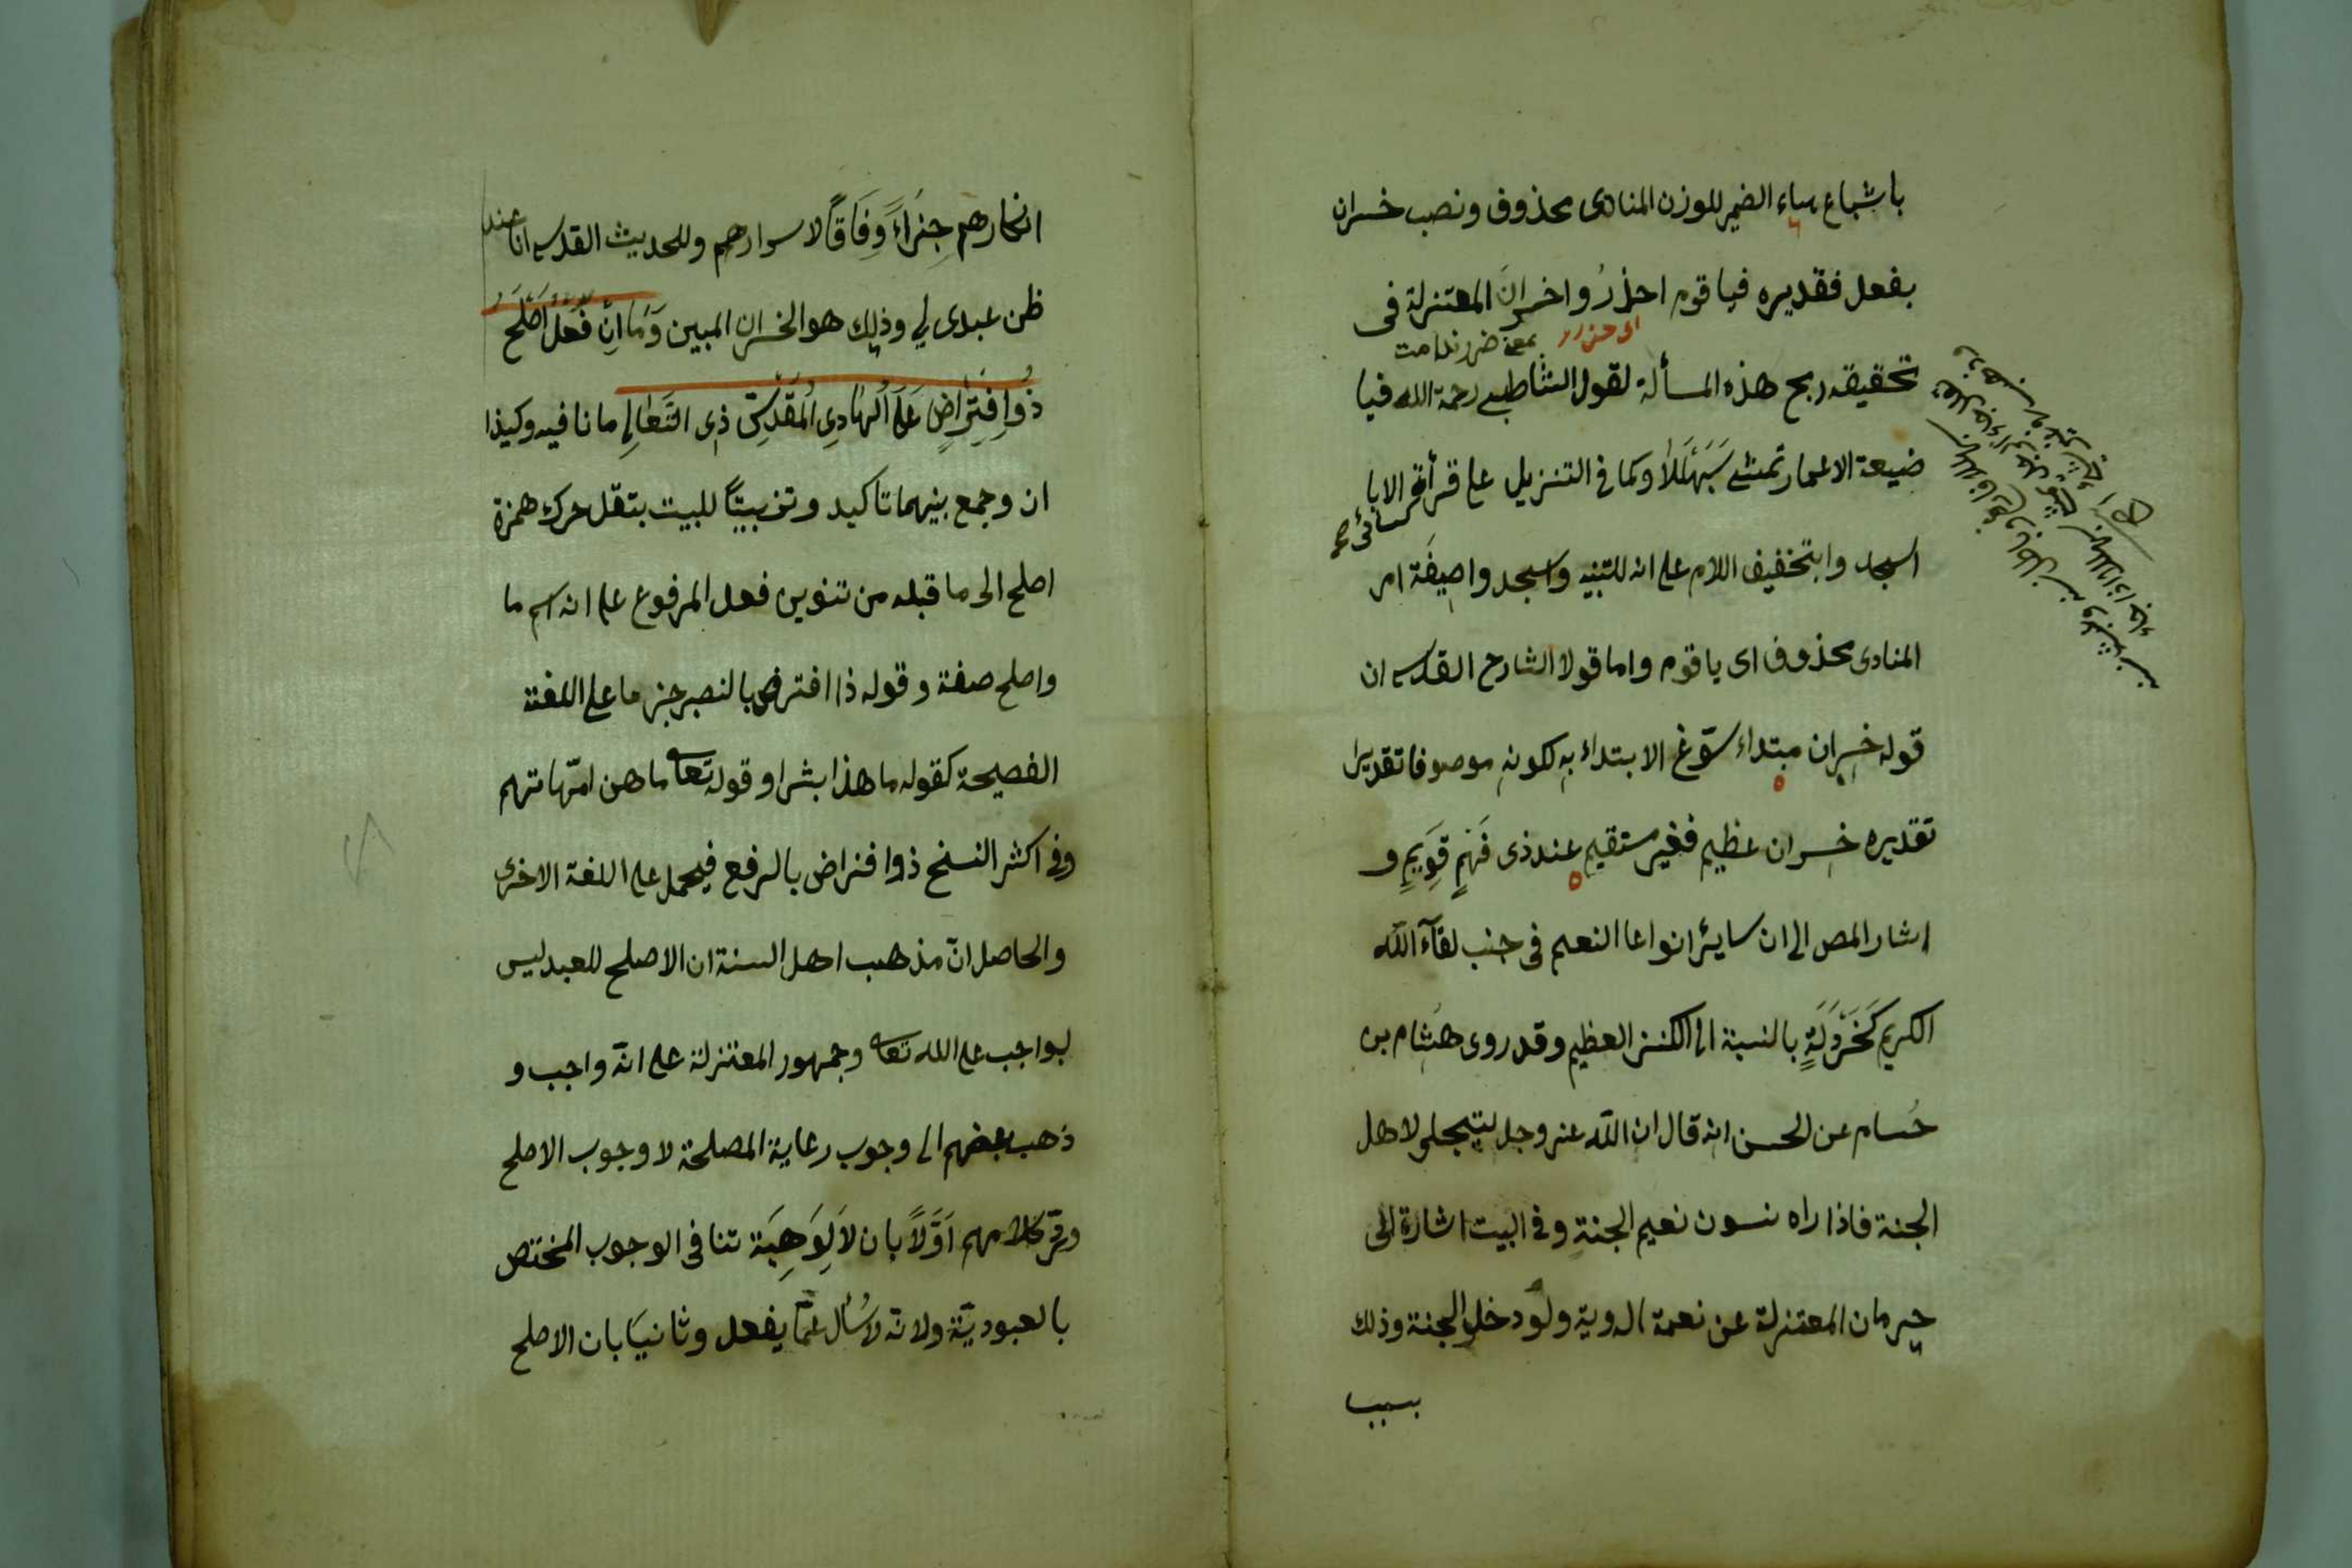 باشباع هاء الضمير للوزن المنادى محذوف ونصب خسران
بفعل فقديره فيا قوم احذرُوا خسرانَ المعتزلة فى
تحقيقه ربح هذه المسألة لقول الشاطبى رحمة الله فيا
بمعنى ضرر ندامت
ضيعة الاعمار تمشى سَبَهْلَلَا وكما فى التنزيل على قرأة الايا
كسائى صح
اسجد وا بتخفيف اللام على انه للتنبيه واسجد وا صيغة امر
المنادى محذوف اى يا قوم واما قول الشارح القدسى ان
قوله خسران مبتداء سوّغ الابتداء به لكونه موصوفا تقديرا
تقديره خسران عظيم فغير مستقيم عند ذى فَهْمٍ قَوِيمٍ و
اشار المص الى ان سايئر انواعا النعيم فى جنب لقآء الله
الكريم كَخَرْدَلَةٍ بالنسبة الى الكنز العظيم وقد روى هشام بن
حُسام عن الحسن انه قال ان الله عز وجل ليتجلى لاهل
الجنة فاذا راه نسون نعيم الجنة وفى البيت اشارة الى
حرمان المعتزلة عن نعمة الروية ولو دخلو الجنة وذلك
بسبب
انكارهم جِزَاءً وِفَاقًا لاسرارهم وللحديث القدسى انا عند
ظن عبدى لي وذلك هو الخسران المبين وَمَا اِنْ فِعْلٌ اَصْلَحَ
ذُو افْتِرَاضٍ عَلَى الْهَادِى الْمُقَدَّسِ ذِى التَّعَالِى ما نافيه وكذا
ان وجمع بينهما تاكيد وتزيينًا للبيت بنقل حركه همزة
اصلح الى ما قبله من تنوين فعل المرفوع على انه اسم ما
واصلح صفة وقوله ذا افترض بالنصب خبر ما على اللغة
الفصيحة كقوله ما هذا بشرا وقوله تعا ما هن امّهاتهم
وفى اكثر النسخ ذوا فتراض بالرفع فيحمل على اللغة الاخرى
والحاصل انّ مذهب اهل السنة ان الاصلح للعبد ليس
بواجب على الله تعا وجمهور المعتزلة على انّه واجب و
ذهب بعضهم الى وجوب رعاية المصلحة لا وجوب الاصلح
ورّد كلامهم اَوَّلًا بان لاَلِوَهِيَة تنافى الوجوب المختص
بالعبوديّة ولانّه لا يُسأل عمّا يفعل وثانيًا بان الاصلح